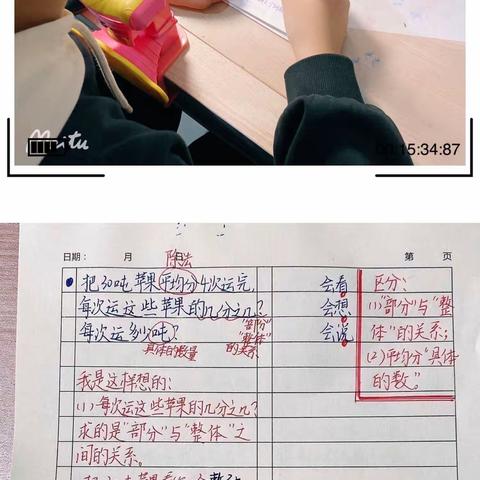 Meitu
00:15:34:87
日期： 月 日 第 页
除法
把30吨苹果平均分4次运完，
每次运这些苹果的几分之几？
每次运多少吨？
"部分"
"整体"
的关系
具体的数量
会看
会想
会说
区分：
(1)"部分"与"整
体"的关系；
(2)平均分"具体
的数"。
我是这样想的：
(1)每次运这些苹果的几分之几？
求的是"部分"与"整体"之
间的关系。